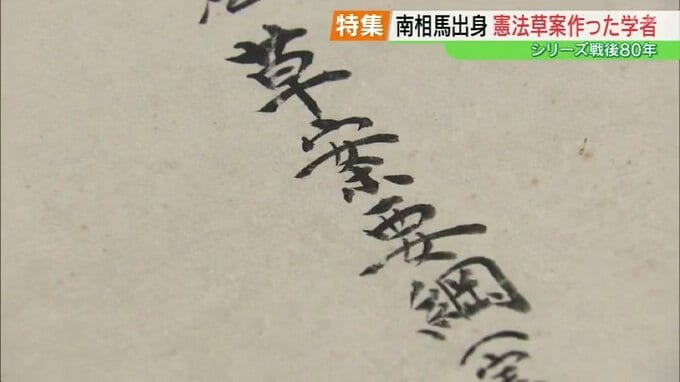 特集 南相馬出身 憲法草案作った学者
シリーズ戦後80年
草案要綱